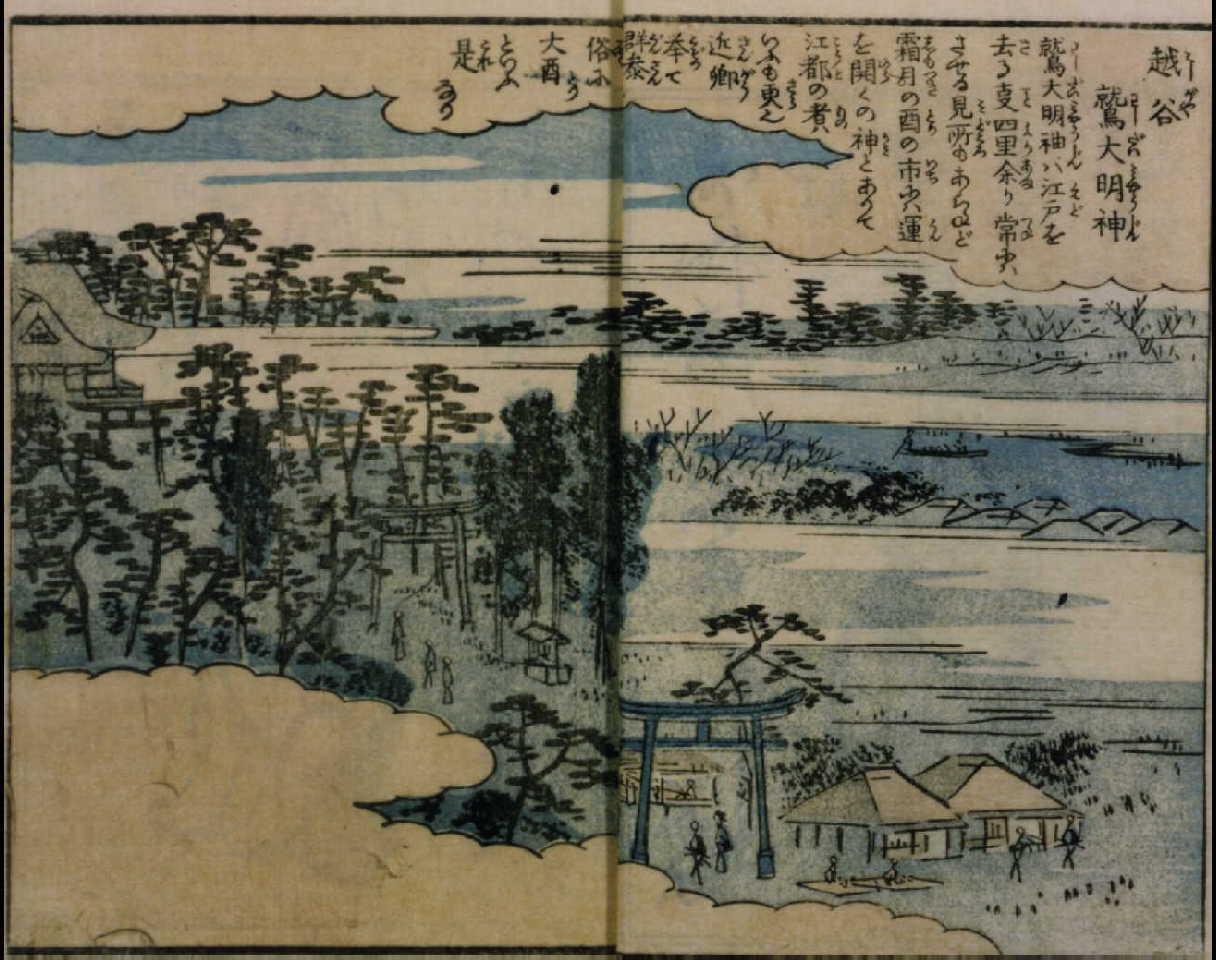 越谷
鷲大明神
鷲大明神ハ江戸を
去る事四里余り常に
させる見所もあらねど
霜月の酉の市に運
を開くの神とあがて
江都の者ハ
いふも更也
近郷
挙て
群参
俗に
大酉
といふ
是
なり